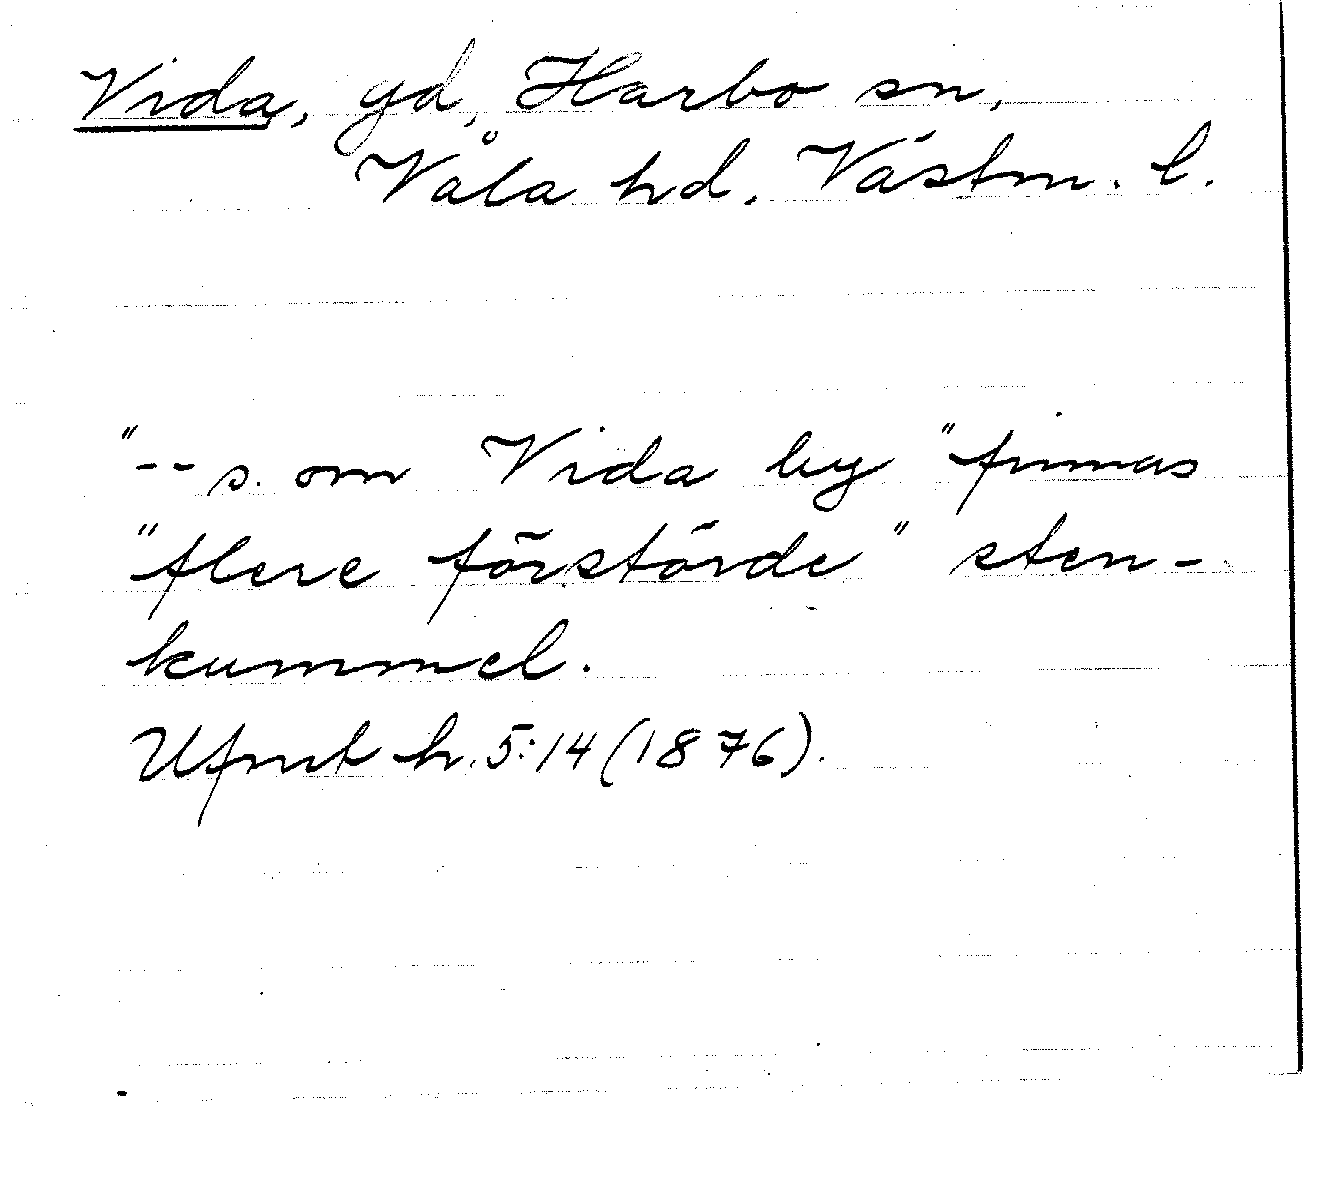 Vida, gd, Harbo sn,
Våla hd. Västm. l.
"-- s. om Vida by "finnas
"flere förstörde" sten-
kummel.
Ufmt h. 5:14 (1876).